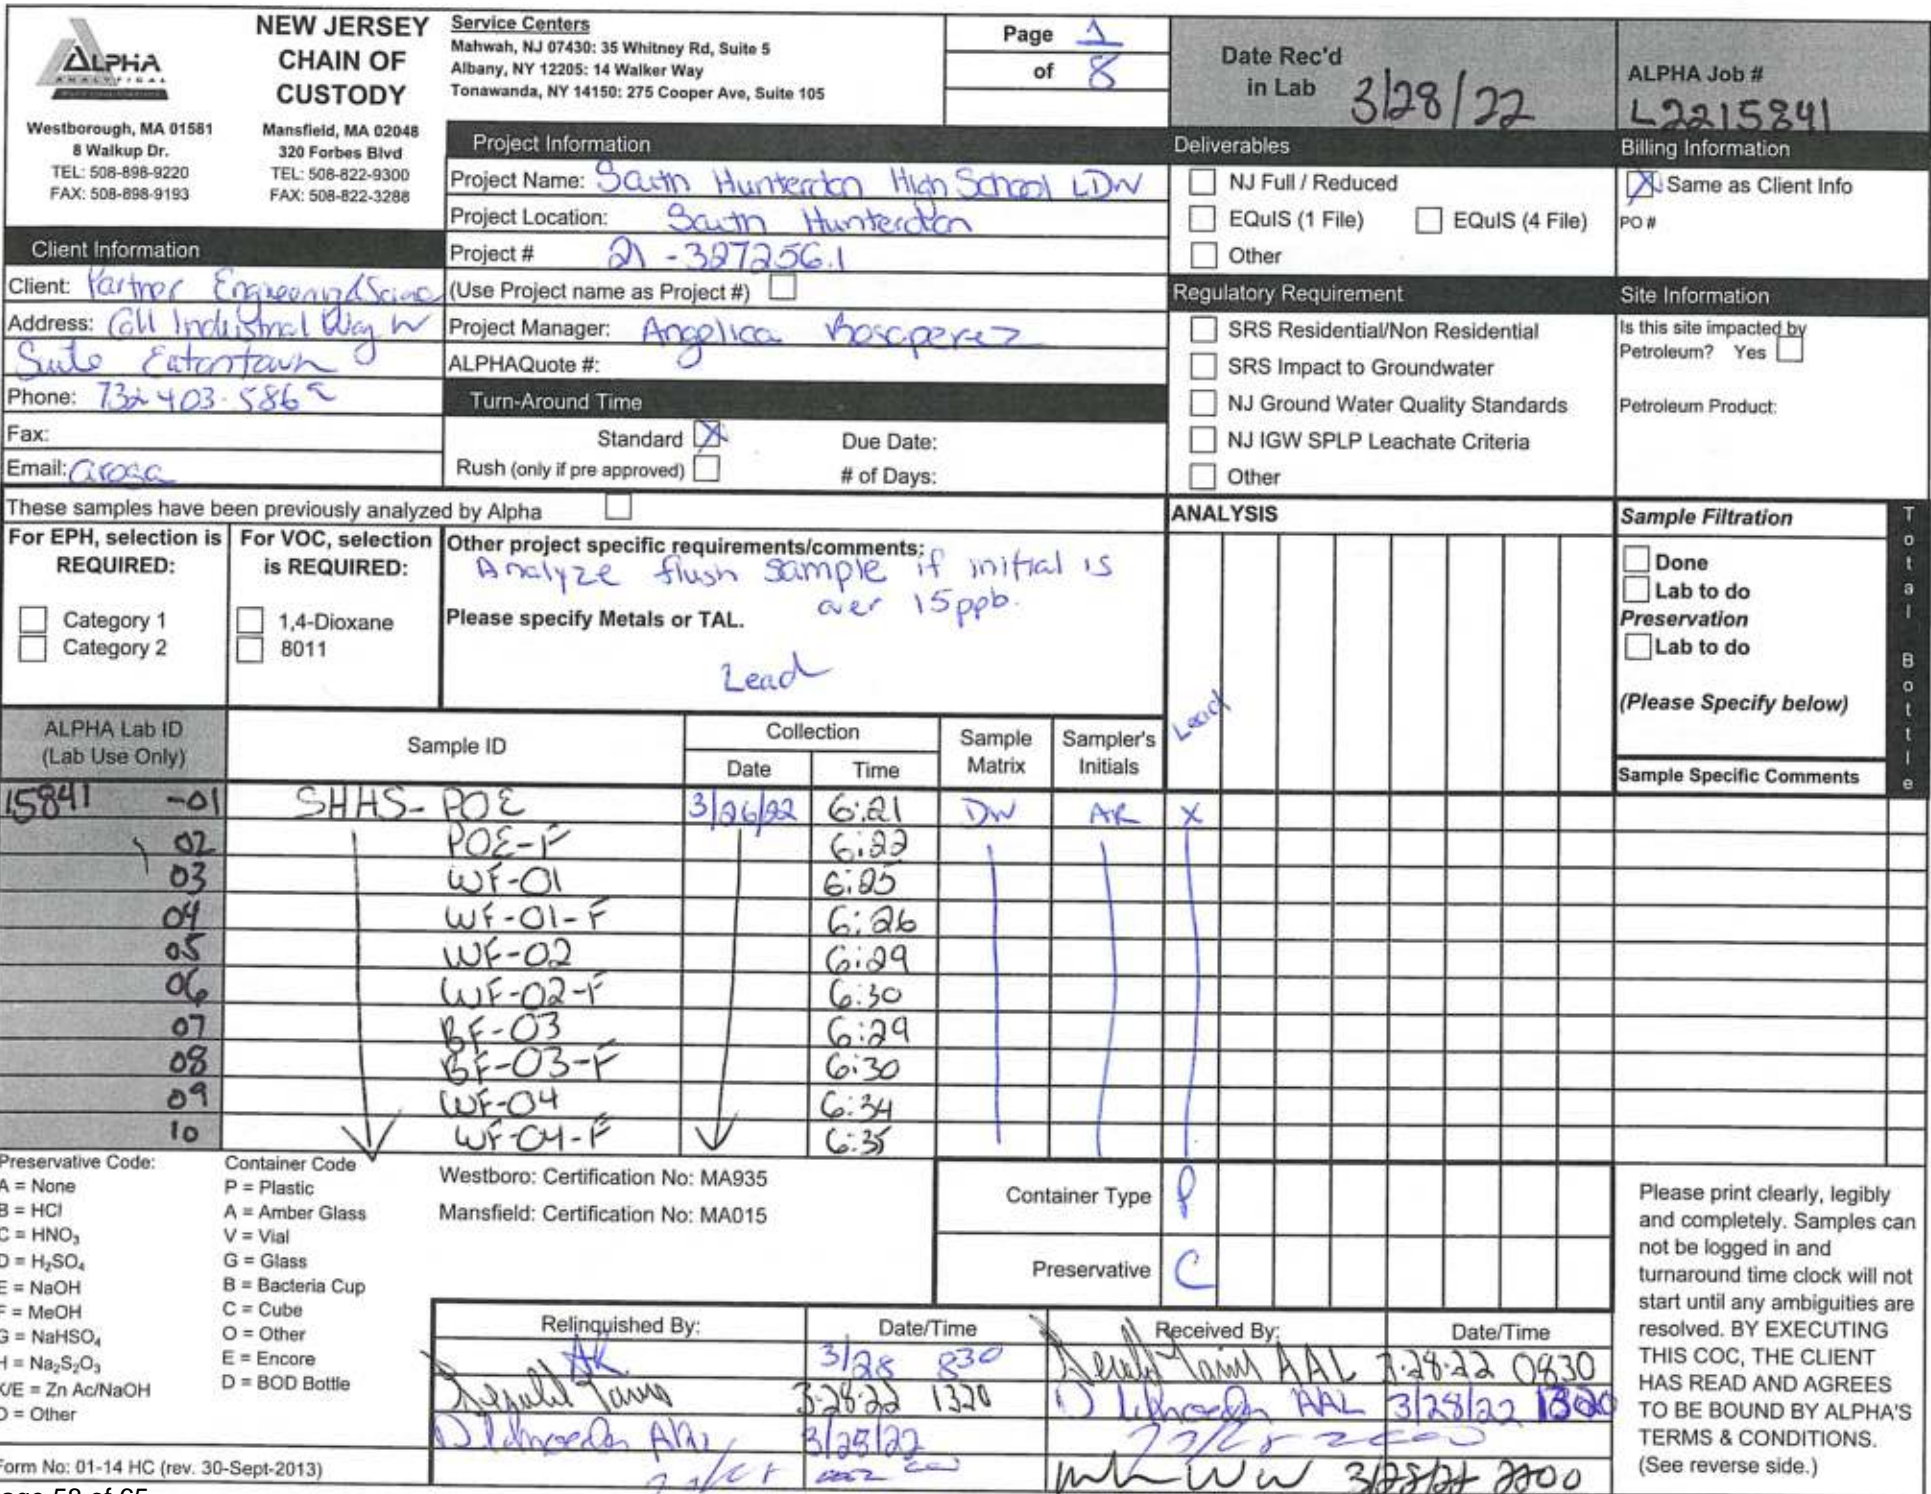 ALPHA
ANALYTICAL
Westborough, MA 01581
8 Walkup Dr.
TEL: 508-898-9220
FAX: 508-898-9193
NEW JERSEY
CHAIN OF
CUSTODY
Mansfield, MA 02048
320 Forbes Blvd
TEL: 508-822-9300
FAX: 508-822-3288
Service Centers
Mahwah, NJ 07430: 35 Whitney Rd, Suite 5
Albany, NY 12205: 14 Walker Way
Tonawanda, NY 14150: 275 Cooper Ave, Suite 105
Page 1
of 8
Date Rec'd
in Lab 3/28/22
ALPHA Job #
L2215841
Client Information
Client: Partner Engineering & Science
Address: 611 Industrial Way W
Suite Eatontown
Phone: 732 403-586
Fax:
Email: arosa
Project Information
Project Name: South Hunterdon High School LDW
Project Location: South Hunterdon
Project # 21-327256.1
(Use Project name as Project #)
Project Manager: Angelica
ALPHAQuote #:
Turn-Around Time
Standard X Due Date:
Rush (only if pre approved) # of Days:
Deliverables
NJ Full / Reduced
EQuIS (1 File) EQuIS (4 File)
Other
Regulatory Requirement
SRS Residential/Non Residential
SRS Impact to Groundwater
NJ Ground Water Quality Standards
NJ IGW SPLP Leachate Criteria
Other
Billing Information
X Same as Client Info
PO #
Site Information
Is this site impacted by
Petroleum? Yes
Petroleum Product:
These samples have been previously analyzed by Alpha
For EPH, selection is
REQUIRED:
Category 1
Category 2
For VOC, selection
is REQUIRED:
1,4-Dioxane
8011
Other project specific requirements/comments:
Analyze flush sample if initial is
over 15ppb.
Please specify Metals or TAL.
Lead
ANALYSIS
Lead
Sample Filtration
Done
Lab to do
Preservation
Lab to do
(Please Specify below)
Sample Specific Comments
Total Bottle
ALPHA Lab ID
(Lab Use Only)
Sample ID
Collection
Date Time
Sample
Matrix
Sampler's
Initials
15841 -01 SHHS- POE 3/26/22 6:21 DW AR X
02 POE-F 6:22
03 WF-01 6:25
04 WF-01-F 6:26
05 WF-02 6:29
06 WF-02-F 6:30
07 BF-03 6:29
08 BF-03-F 6:30
09 WF-04 6:34
10 WF-04-F 6:35
Preservative Code:
A = None
B = HCl
C = HNO₃
D = H₂SO₄
E = NaOH
F = MeOH
G = NaHSO₄
H = Na₂S₂O₃
K/E = Zn Ac/NaOH
O = Other
Container Code
P = Plastic
A = Amber Glass
V = Vial
G = Glass
B = Bacteria Cup
C = Cube
O = Other
E = Encore
D = BOD Bottle
Westboro: Certification No: MA935
Mansfield: Certification No: MA015
Container Type P
Preservative C
Relinquished By: Date/Time Received By: Date/Time
AR 3/28 830 AAL 3-28-22 0830
3-28-22 1320 AAL 3/28/22 1320
3/28/22
3/28/22 2200
Please print clearly, legibly
and completely. Samples can
not be logged in and
turnaround time clock will not
start until any ambiguities are
resolved. BY EXECUTING
THIS COC, THE CLIENT
HAS READ AND AGREES
TO BE BOUND BY ALPHA'S
TERMS & CONDITIONS.
(See reverse side.)
Form No: 01-14 HC (rev. 30-Sept-2013)